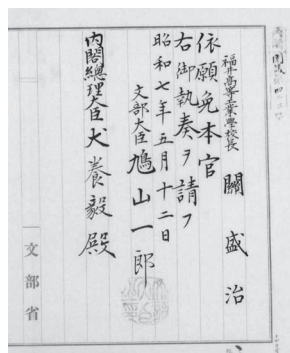 福井高等工業學校長 關盛治
依願免本官
右御執奏ヲ請フ
昭和七年五月十二日
文部大臣 鳩山一郎
内閣總理大臣犬養毅殿
文部省